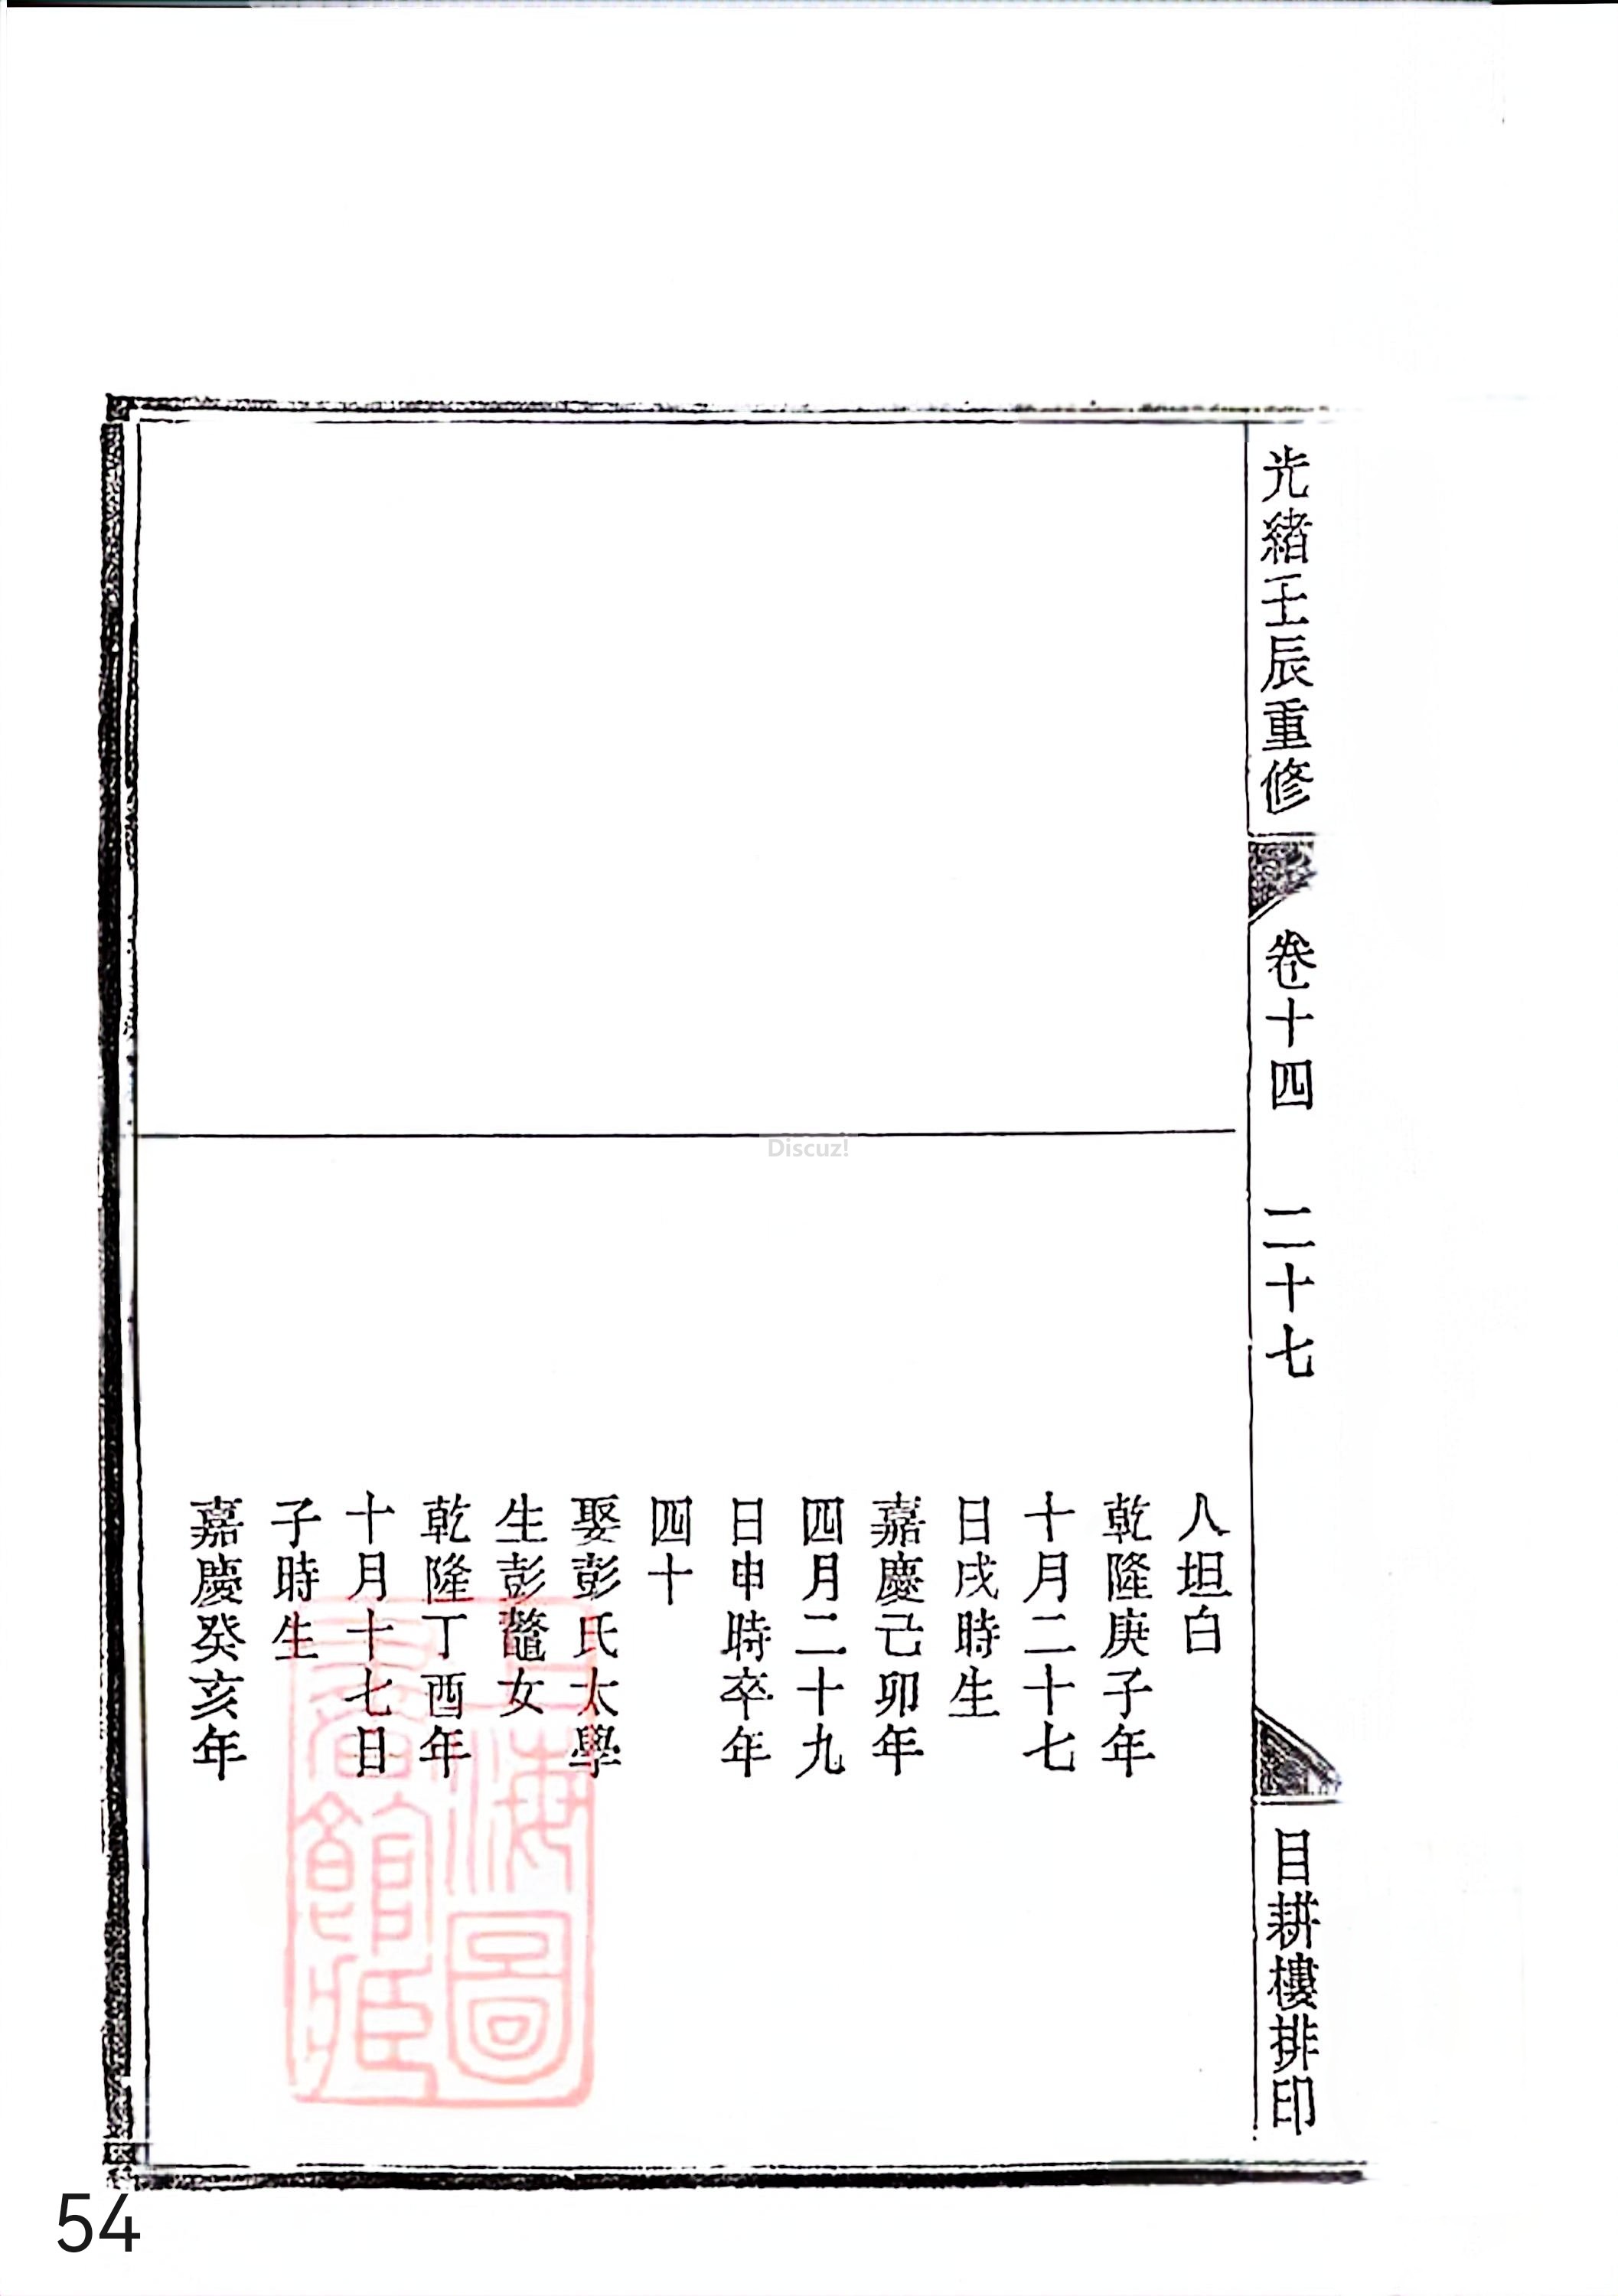 光緒壬辰重修
卷十四
二十七
目耕樓排印
八坦白
乾隆庚子年
十月二十七
日戌時生
嘉慶己卯年
四月二十九
日申時卒年
四十
娶彭氏太學
生彭鼇女
乾隆丁酉年
十月十七日
子時生
嘉慶癸亥年
上海圖
書館藏
Discuz!
54